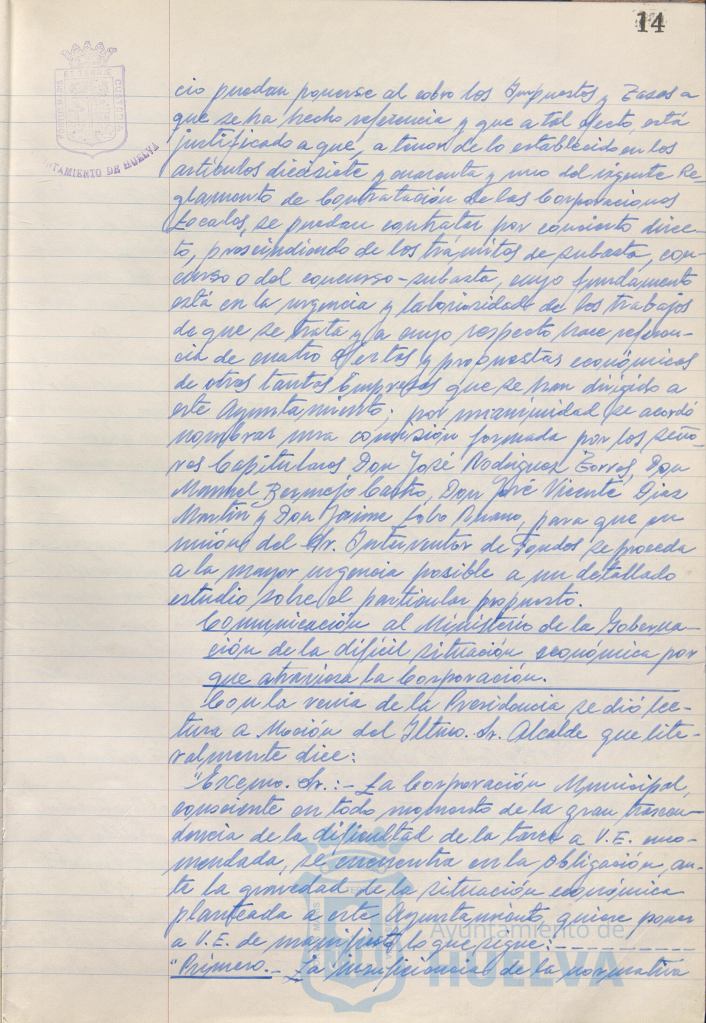 14
AYUNTAMIENTO DE HUELVA
cio puedan ponerse al cobro los Impuestos y Tasas a
que se ha hecho referencia y que a tal efecto, está
justificado a que, a tenor de lo establecido en los
artículos diecisiete y cuarenta y uno del vigente Re-
glamento de Contratación de las Corporaciones
Locales, se puedan contratar por concierto direc-
to, prescindiendo de los trámites de subasta, con-
curso o del concurso-subasta, cuyo fundamento
está en la urgencia y laboriosidad de los trabajos
de que se trata y a cuyo respecto hace referen-
cia de cuatro ofertas y propuestas económicas
de otras tantas Empresas que se han dirigido a
este Ayuntamiento; por unanimidad se acordó
nombrar una comisión formada por los seño-
res Capitulares Don José Rodríguez Torres, Don
Manuel Bermejo Castro, Don José Vicente Díaz
Martín y Don Jaime Lobo, para que en
unión del Sr. Interventor de Fondos se proceda
a la mayor urgencia posible a un detallado
estudio sobre el particular propuesto.
Comunicación al Ministerio de la Goberna-
ción de la difícil situación económica por
que atraviesa la Corporación.
Con la venia de la Presidencia se dió lec-
tura a Moción del Iltmo. Sr. Alcalde que lite-
ralmente dice:
"Excmo. Sr.:- La Corporación Municipal,
consciente en todo momento de la gran trascen-
dencia de la dificultad de la tarea a V.E. enco-
mendada, se encuentra en la obligación, an-
te la gravedad de la situación económica
planteada a este Ayuntamiento, quiere poner
a V.E. de manifiesto lo que sigue:- - - - - - - - -
"Primero.- La insuficiencia de la normativa
Ayuntamiento de
HUELVA